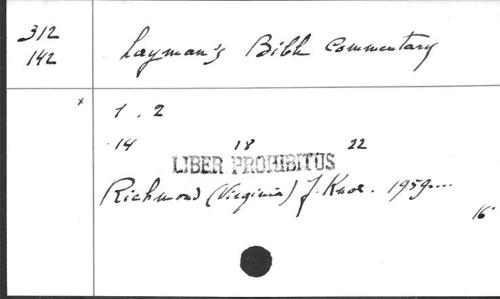 312
142
Layman's Bible Commentary
x
1. 2
14 18 22
LIBER PROHIBITUS
Richmond (Virginia) J. Knox. 1959...
16°